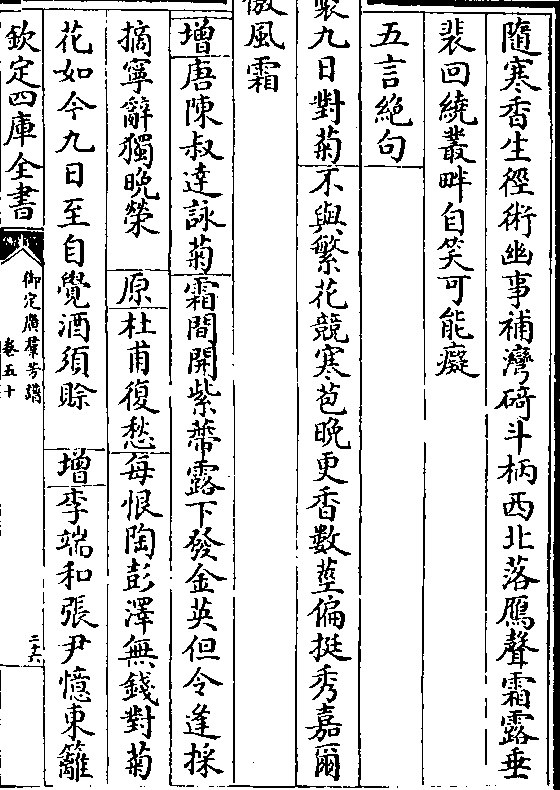 隨寒香生徑術幽事補灣碕斗柄西北落鴈聲霜露垂
裴回繞叢畔自笑可能癡
五言絶句
九日對菊不與繁花競寒苞晚更香數莖偏挺秀嘉爾
傲風霜
增唐陳叔達詠菊霜間開紫蔕露下發金英但令逢採
摘寧辭獨晚榮 原杜甫復愁每恨陶彭澤無錢對菊
花如今九日至自覺酒須賒 增李端和張尹憶東籬
欽定四庫全書
御定廣羣芳譜
卷五十
二十六